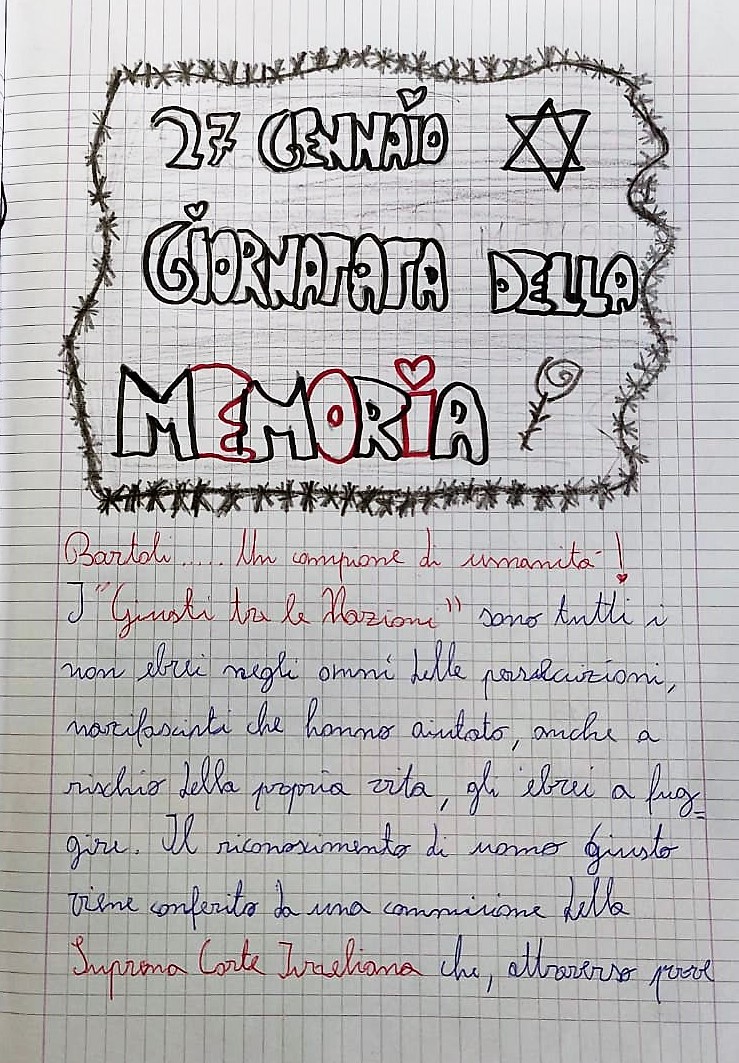 27 GENNAIO
GIORNATATA DELLA
MEMORIA
Bartoli..... Un campione di umanità!
I "Giusti tra le Nazioni" sono tutti i
non ebrei negli anni delle persecuzioni,
nazifascisti che hanno aiutato, anche a
rischio della propria vita, gli ebrei a fug=
gire. Il riconoscimento di uomo Giusto
viene conferito da una commissione della
Suprema Corte Israeliana che, attraverso prove